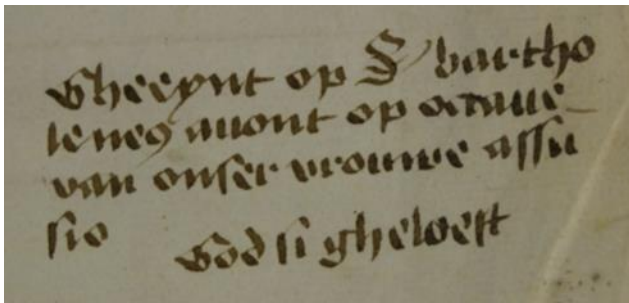 Gheeynt op S bartho
leneus auont op octaue
van onser vrouwe assu
sio
God si gheloeft